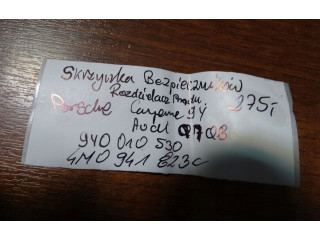 Skrzynka Bezpieczników
Rozdzielacz Prądu 275,-
Porsche Cayenne 9Y
Audi Q7 Q8
9Y0 010 530
4M0 941 823C